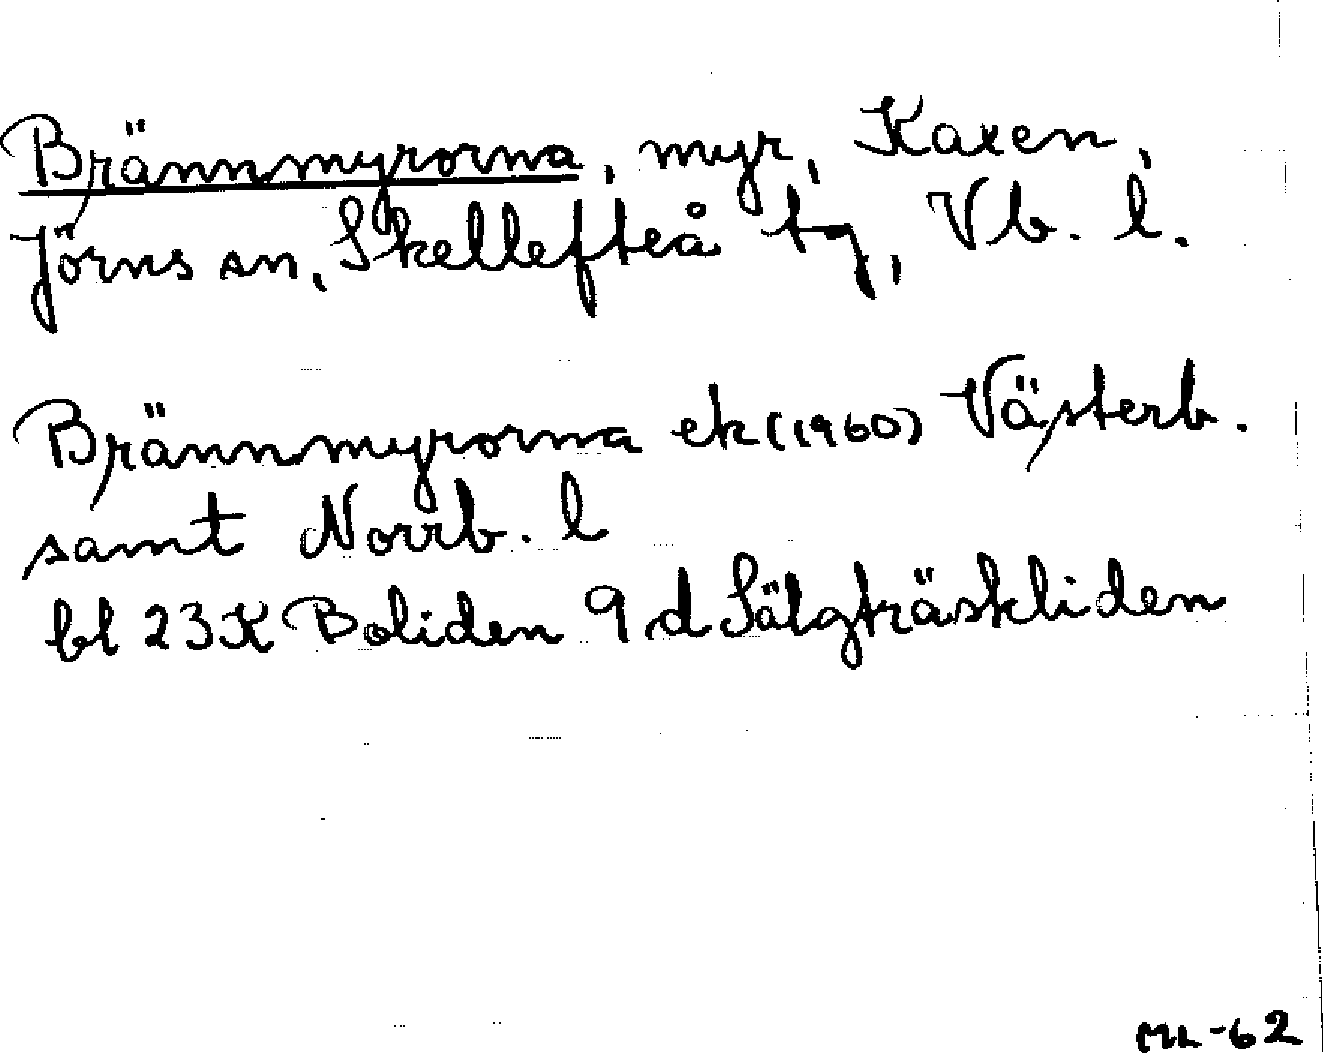 Brännmyrorna, myr, Kaxen,
Jörns sn, Skellefteå tg, Vb. l.
Brännmyrorna ek (1960) Västerb.
samt Norrb. l
bl 23K Boliden 9d Sälgträskliden
ML-62